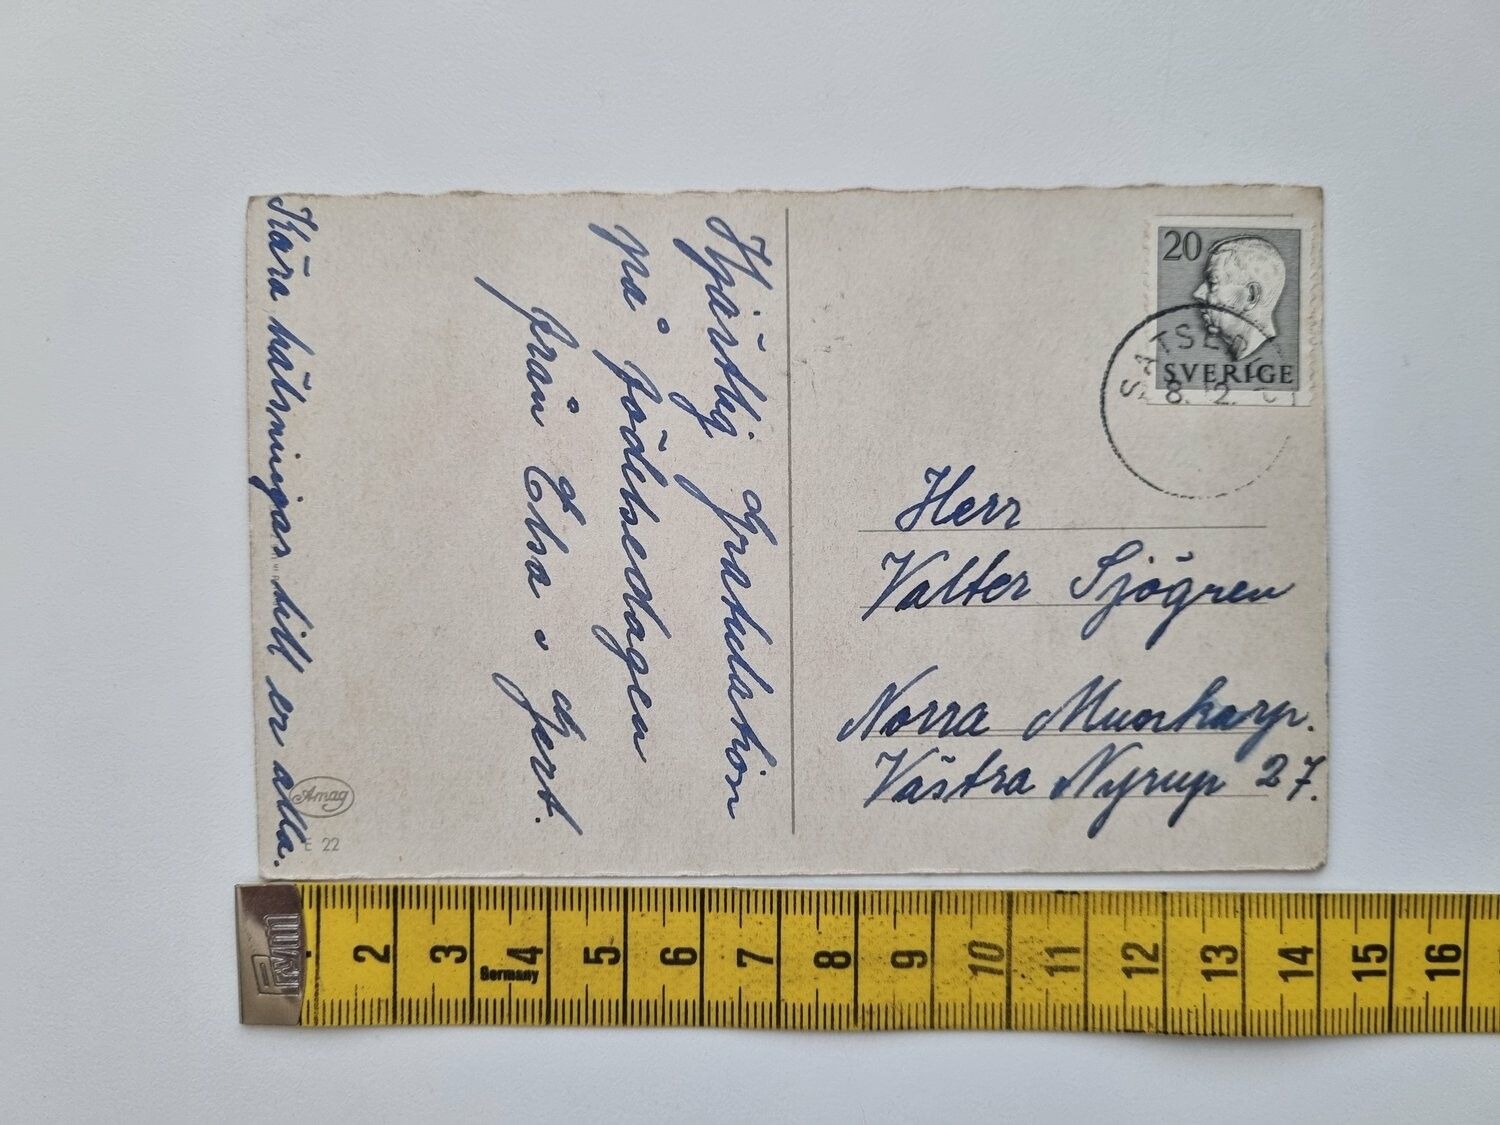 Hjärtlig Gratulation
på födelsedagen
från Elsa o Gert.
Kära hälsningar till er alla.
Amag
E 22
20
SVERIGE
SATSER
8. 12.
Herr
Valter Sjögren
Norra Munkarp.
Västra Nyrup 27.
2 3 4 5 6 7 8 9 10 11 12 13 14 15 16
Germany